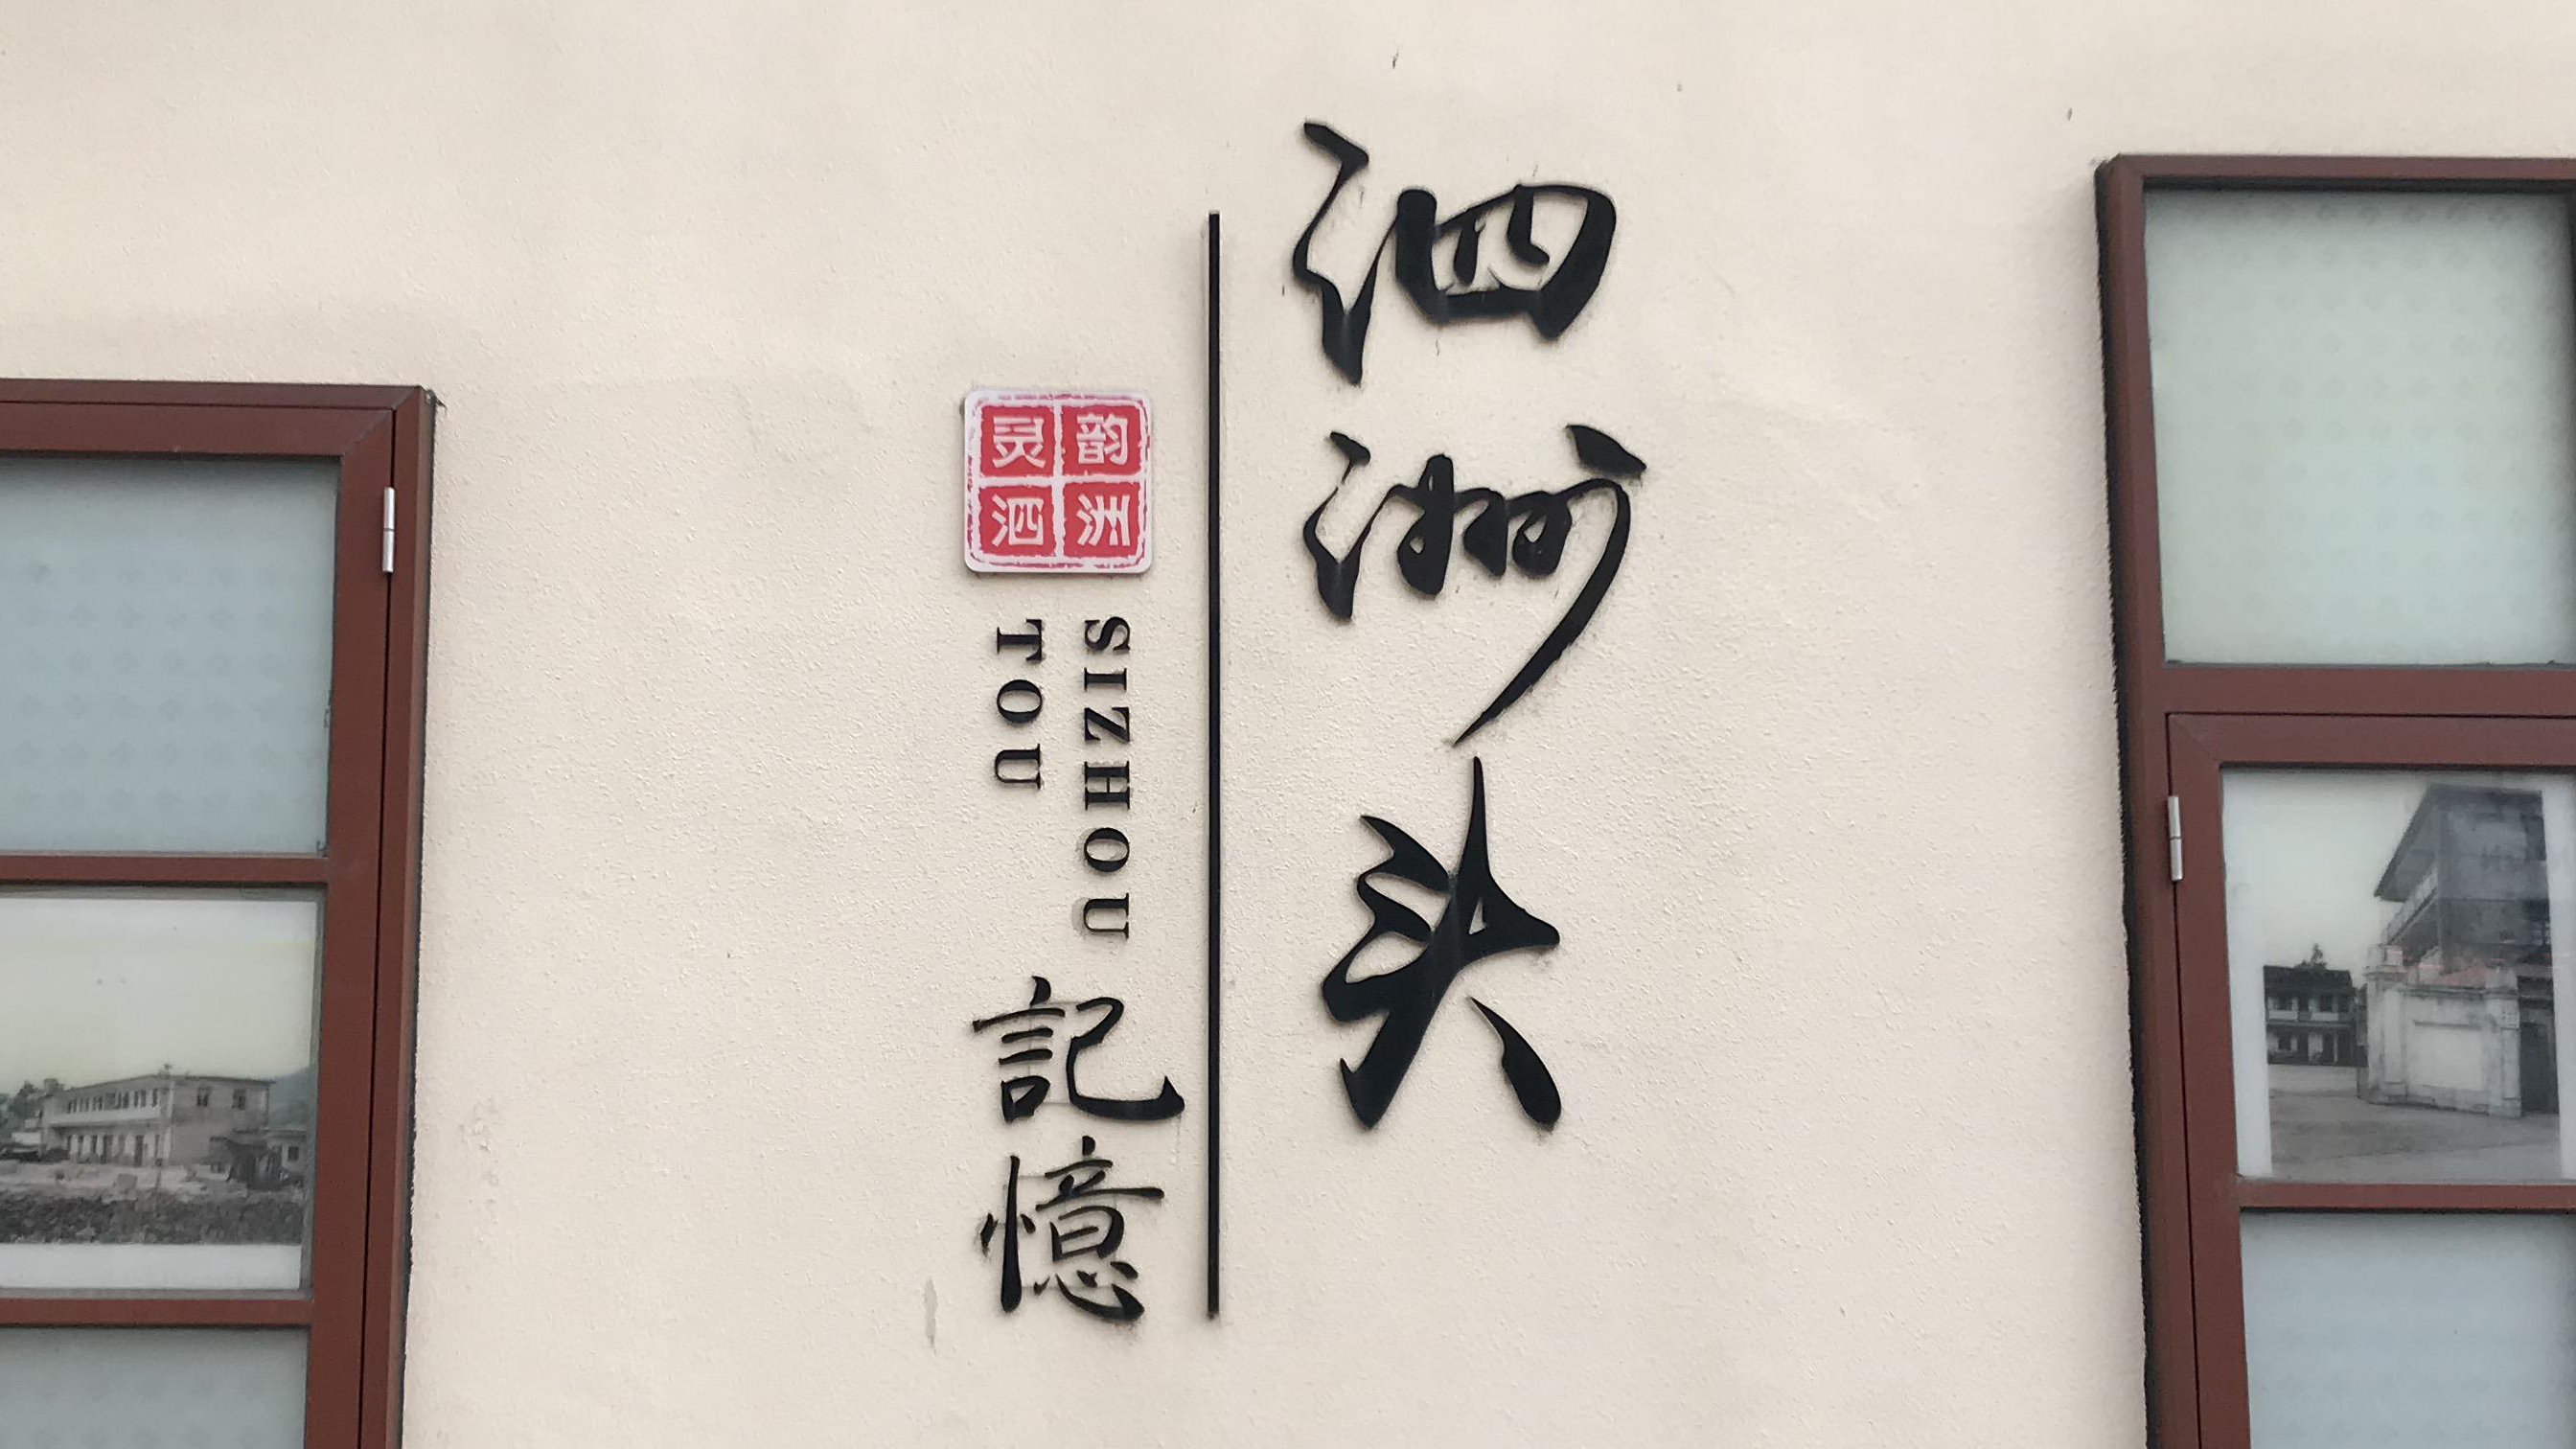 泗洲头
韵洲
灵泗
SIZHOU
TOU
記憶